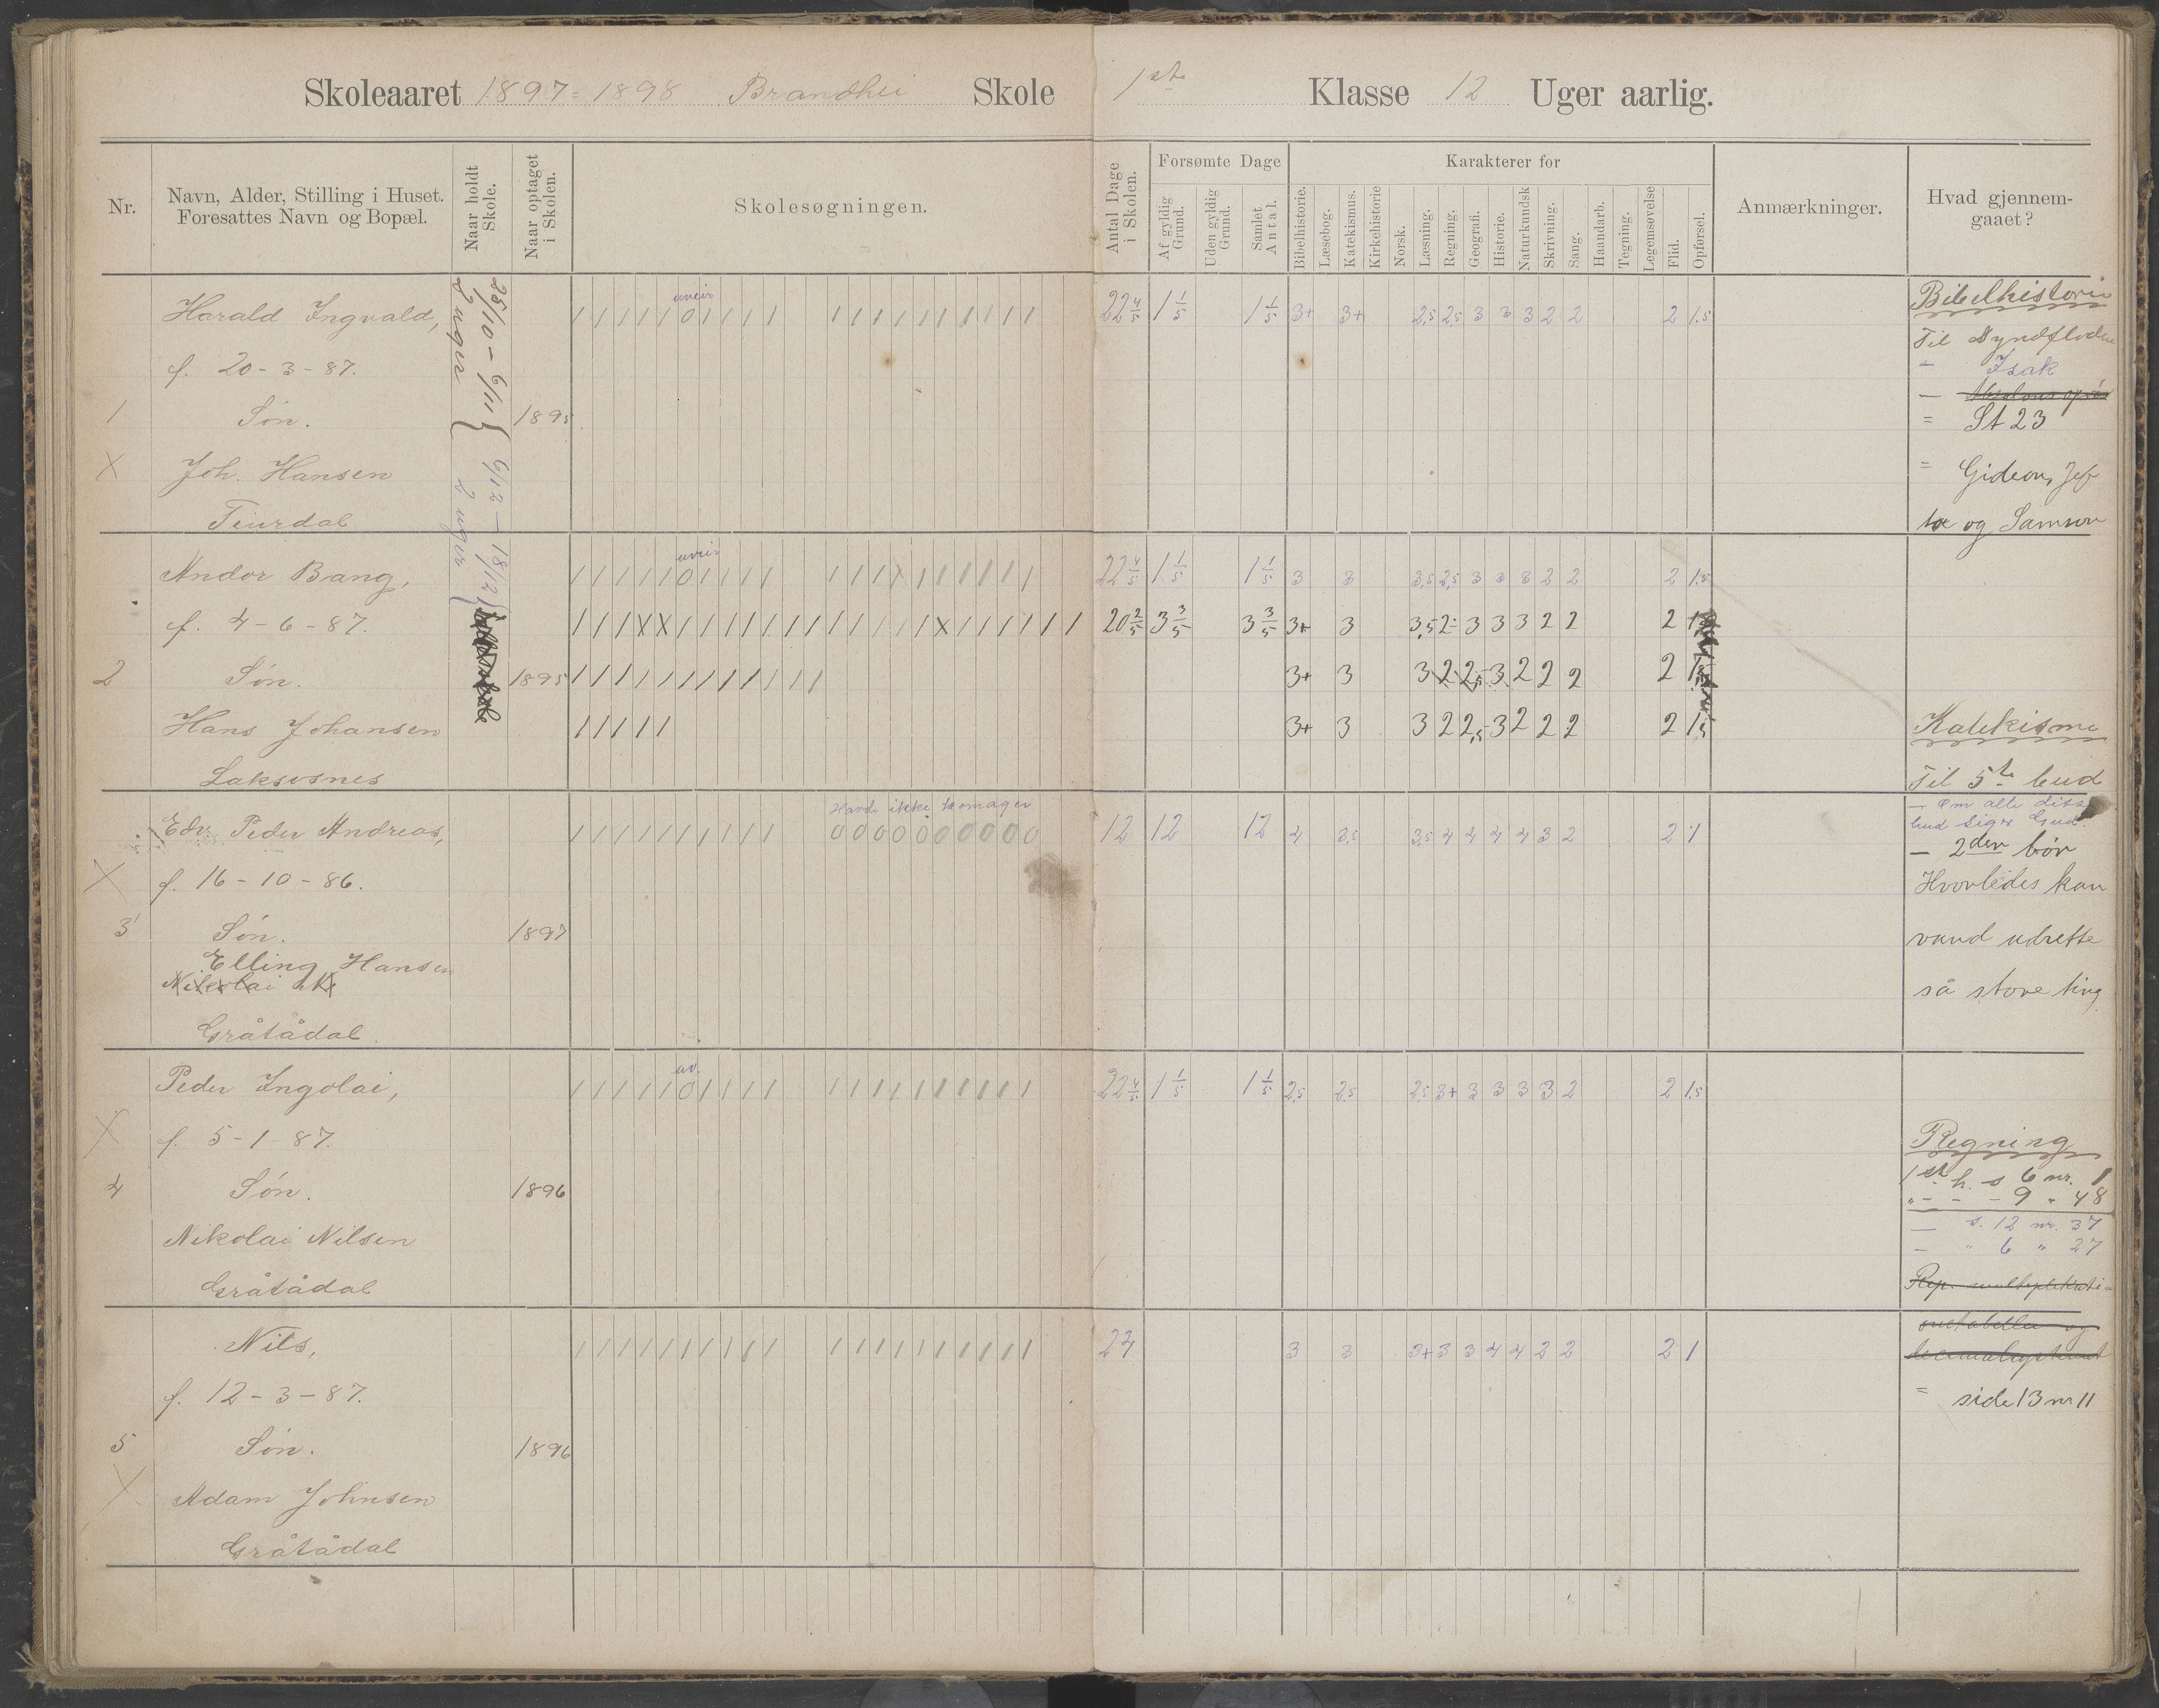 Skoleaaret 1897-1898 Brandhei Skole 1ste Klasse 12 Uger aarlig.
Nr.
Navn, Alder, Stilling i Huset.
Foresattes Navn og Bopæl.
Naar holdt
Skole.
Naar optaget
i Skolen.
Skolesøgningen.
Antal Dage
i Skolen.
Forsømte Dage
Af gyldig
Grund.
Uden gyldig
Grund.
Samlet
Antal.
Karakterer for
Bibelhistorie.
Læsebog.
Katekismus.
Kirkehistorie
Norsk.
Læsning.
Regning.
Geografi.
Historie.
Naturkundsk
Skrivning.
Sang.
Haandarb.
Tegning.
Legemsøvelse
Flid.
Opførsel.
Anmærkninger.
Hvad gjennem-
gaaet?
25/10 - 6/11
2 uger
6/12 - 18/12
2 uger
Harald Ingvald, uveir / / / / / 0 / / / / / / / / / / / / / / 22 4/5 1 1/5 1 1/5 3+ 3+ 2,5 2,5 3 3 3 2 2 2 1,5
f. 20-3-87.
1 Søn. 1895
X Joh. Hansen
Andor Bang, 22 4/5 1 1/5 1 1/5 3 3 3,5 2,5 3 3 3 2 2 2 1,5
f. 4-6-87. / / / X X / / / / / / / / / / / / X / / / / / / 20 2/5 3 3/5 3 3/5 3+ 3 3,5 2- 3 3 3 2 2 2
2 Søn. 1895 3+ 3 3 2 2,5 3 2 2 2 2
Hans Johansen / / / / / 3+ 3 3 2 2,5 3 2 2 2 2 1,5
Laksosnes
Havde ikke komager
Edv. Peder Andreas, / / / / / / / / / / 0 0 0 0 0 0 0 0 0 0 12 12 12 4 3,5 3,5 4 4 4 4 3 2 2 1
X f. 16-10-86.
3 Søn. 1897
Elling Hansen
Nikolai
Gråtådal.
uv.
Peder Ingolai, 22 4/5 1 1/5 1 1/5 2,5 2,5 2,5 3+ 3 3 3 3 2 2 1,5
X f. 5-1-87.
4 Søn. 1896
Nikolai Nilsen
Gråtådal
Nils, 24 3 3 3+ 3 3 4 4 2 2 2 1
f. 12-3-87.
5 Søn. 1896
X Adam Johnsen
Gråtådal
Bibelhistorie
Til Syndfloden
- Isak
= St 23
= Gideon, Jef
ta og Samson
Katekisme
Til 5te bud
- Om alle disse
bud siger Gud.
- 2den bøn
Hvorledes kan
vand udrette
så store ting
Regning
1st h. s 6 nr. 1
" - - - 9 " 48
- s. 12 nr. 37
- " 6 " 27
Rep. multiplikati-
onstabellen og
decimalsystemet
= side 13 nr 11